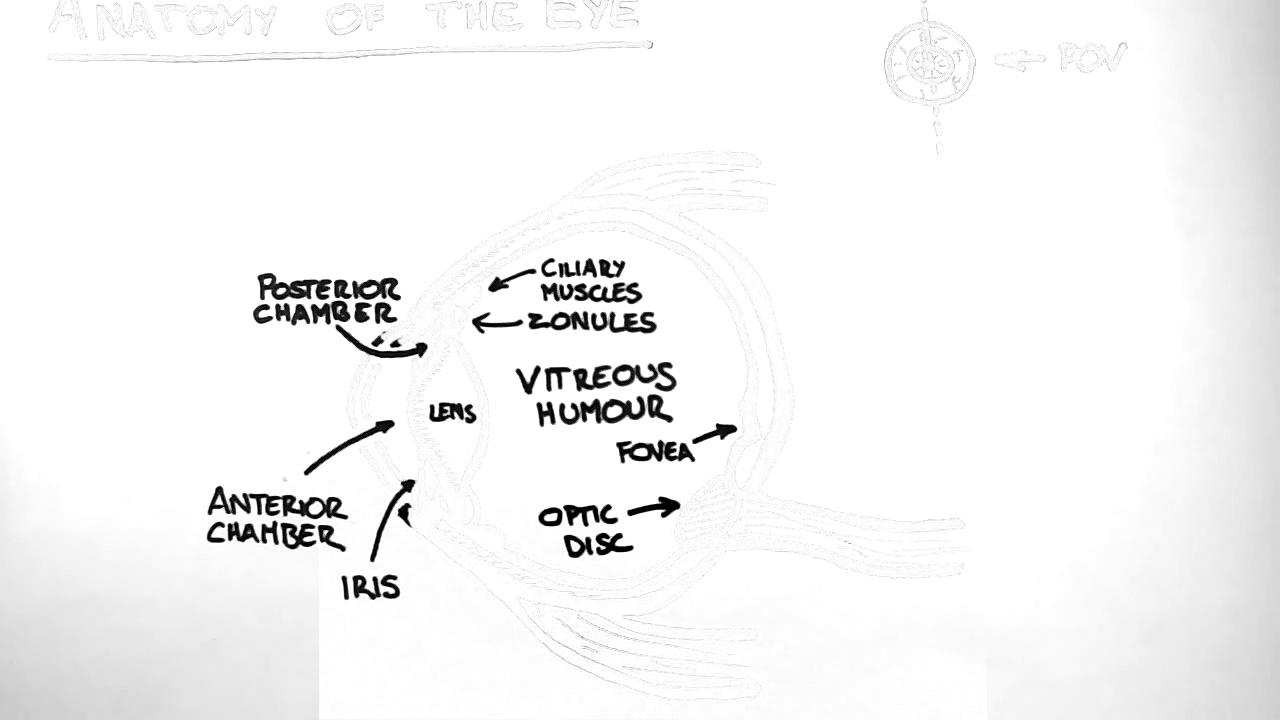 ANATOMY OF THE EYE
POV
POSTERIOR
CHAMBER
CILIARY
MUSCLES
ZONULES
VITREOUS
HUMOUR
LENS
FOVEA
ANTERIOR
CHAMBER
OPTIC
DISC
IRIS